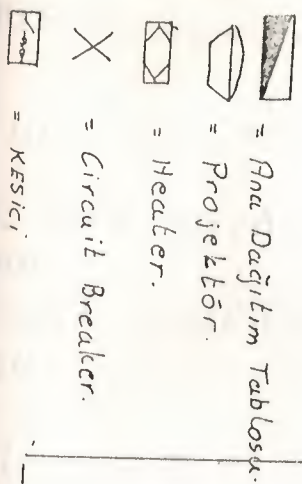 = Ana Dağıtım Tablosu.
= Projektör.
= Heater.
= Circuit Breaker.
= KESİCİ